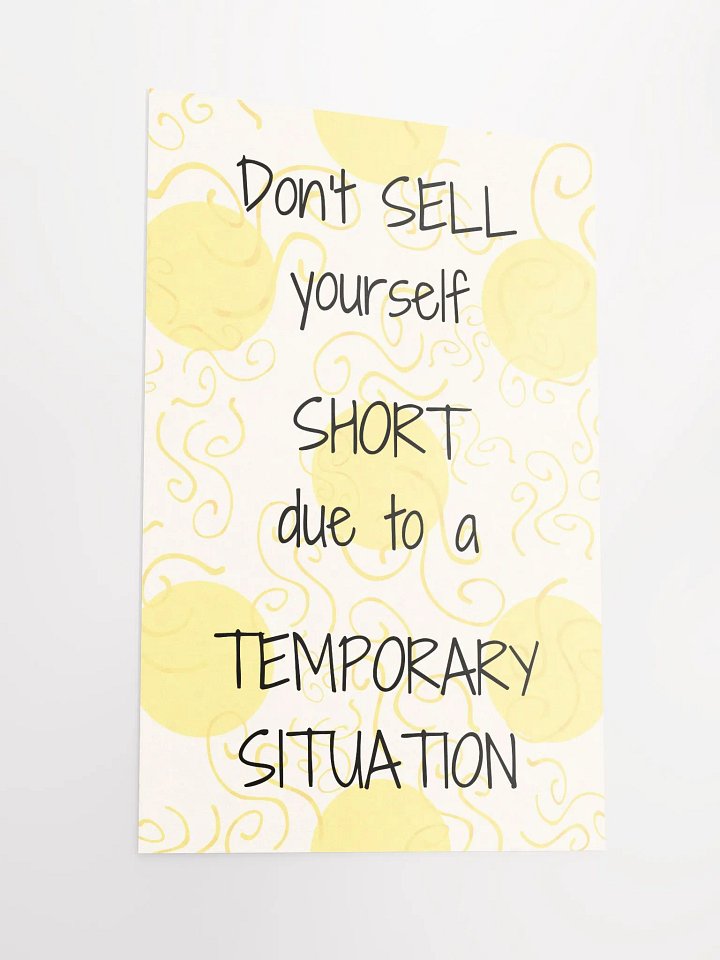 Don't SELL
yourself
SHORT
due to a
TEMPORARY
SITUATION